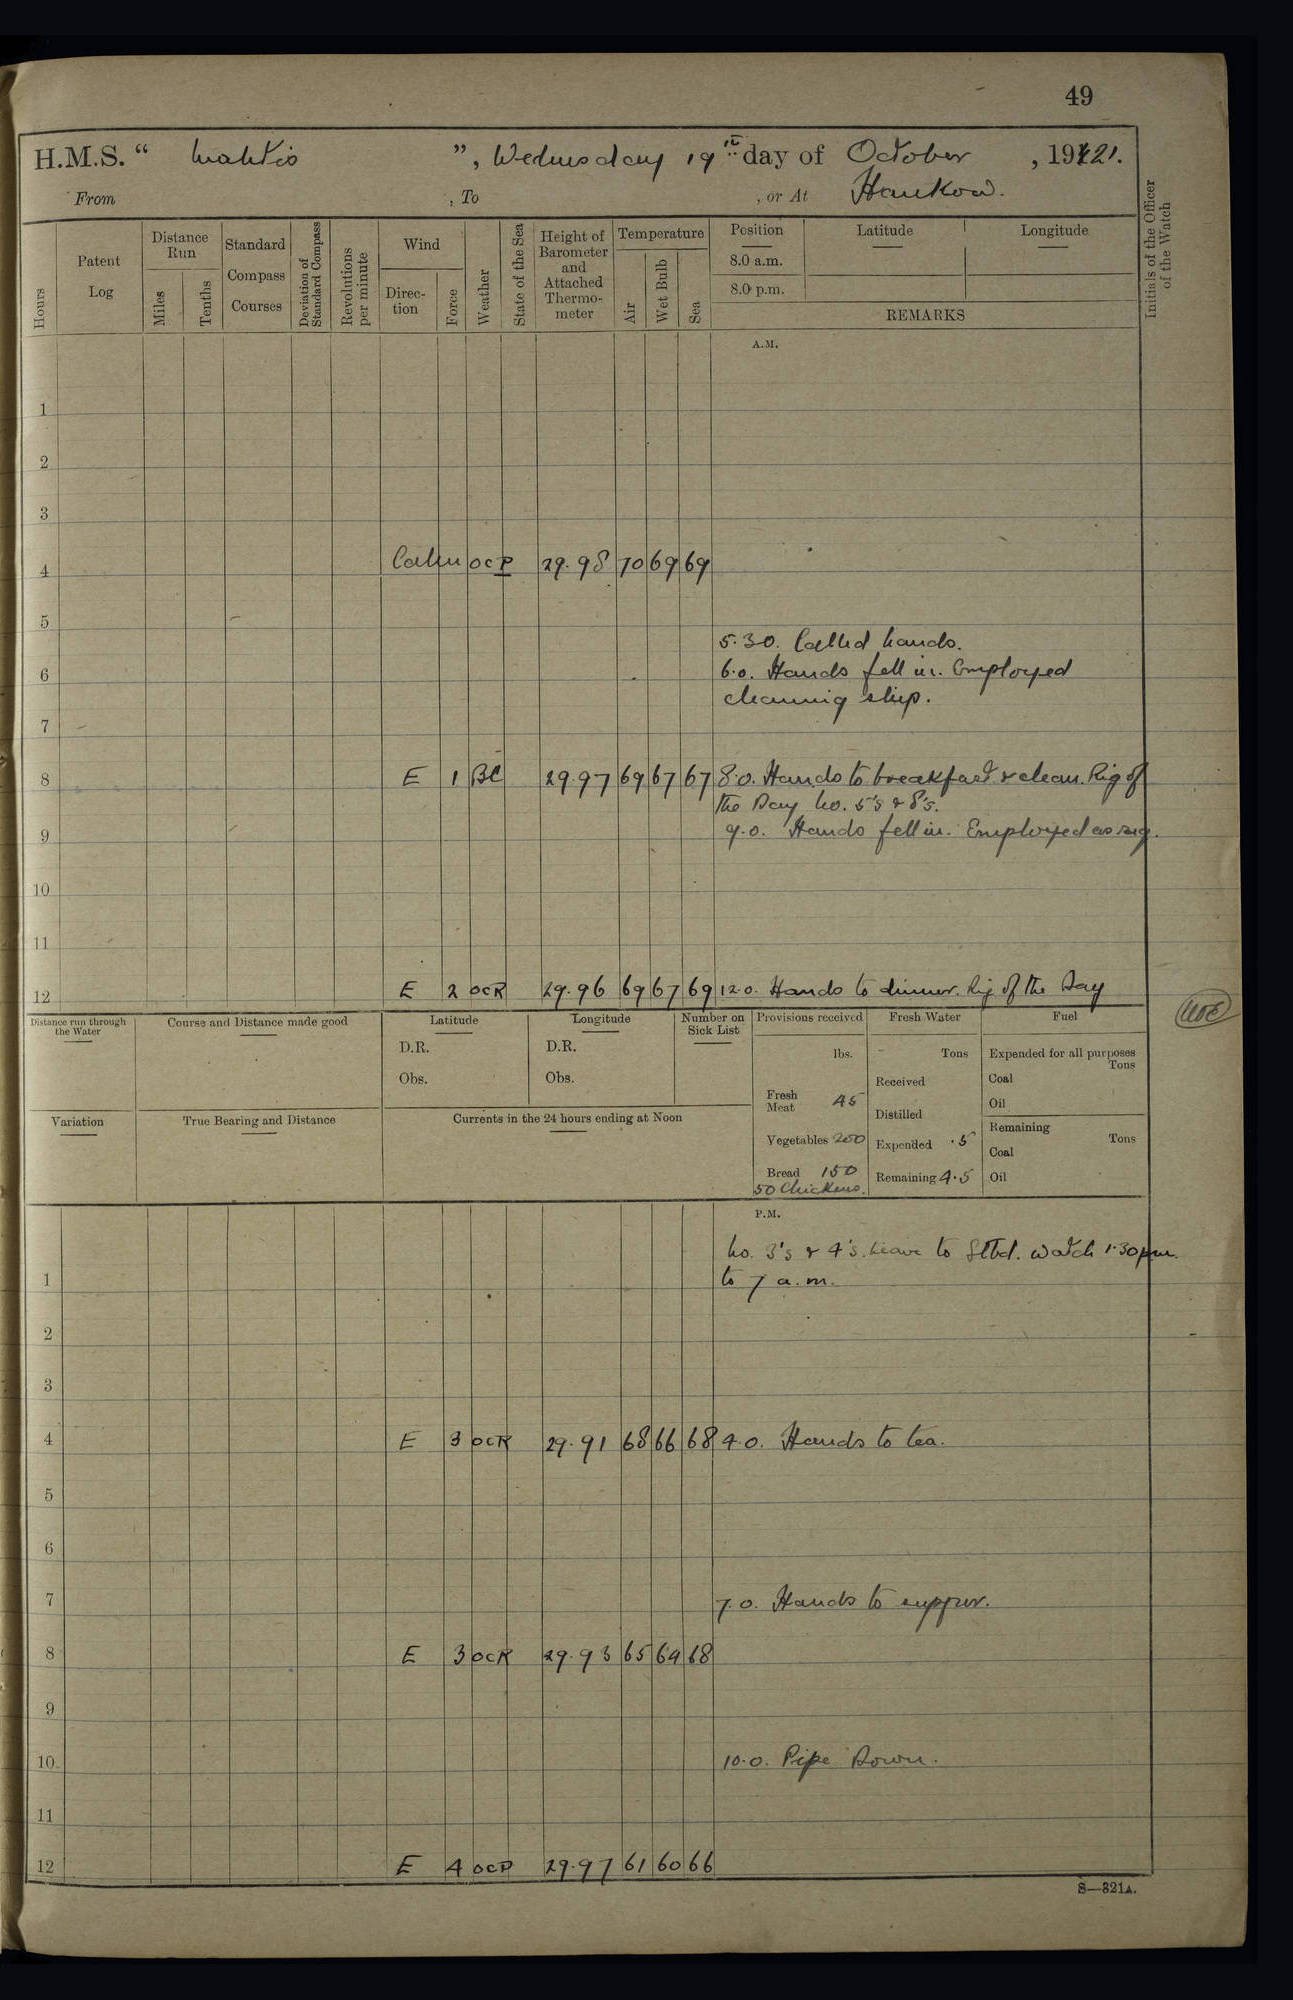 49
H.M.S. " Mantis ", Wednesday 19th day of October, 1921.
From , To , or At Hankow.
Hours
Patent Log
Distance Run
Miles
Tenths
Standard Compass Courses
Deviation of Standard Compass
Revolutions per minute
Wind
Direction
Force
Weather
State of the Sea
Height of Barometer and Attached Thermometer
Temperature
Air
Wet Bulb
Sea
Position
8.0 a.m.
8.0 p.m.
Latitude
Longitude
REMARKS
Initials of the Officer of the Watch
A.M.
1
2
3
4 Calm OCP 29.98 70 69 69
5
5.30. Called hands.
6 6.0. Hands fell in. Employed
cleaning ship.
7
8 E 1 BC 29.97 69 67 67 8.0. Hands to breakfast & clean. Rig of
the Day No. 5's & 8's.
9 9.0. Hands fell in. Employed as req.
10
11
12 E 2 OCR 29.96 69 67 69 12.0. Hands to dinner. Rig of the Day
Distance run through the Water
Course and Distance made good
Latitude
D.R.
Obs.
Longitude
D.R.
Obs.
Number on Sick List
Variation
True Bearing and Distance
Currents in the 24 hours ending at Noon
Provisions received
lbs.
Fresh Meat 45
Vegetables 200
Bread 150
50 Chickens.
Fresh Water
Tons
Received
Distilled
Expended .5
Remaining 4.5
Fuel
Expended for all purposes
Tons
Coal
Oil
Remaining
Tons
Coal
Oil
P.M.
No. 3's & 4's. Leave to Stbd. watch 1.30 p.m.
1 to 7 a.m.
2
3
4 E 3 OCR 29.91 68 66 68 4.0. Hands to tea.
5
6
7 7.0. Hands to supper.
8 E 3 OCR 29.93 65 64 68
9
10 10.0. Pipe Down.
11
12 E 4 OCP 29.97 61 60 66
S—321A.